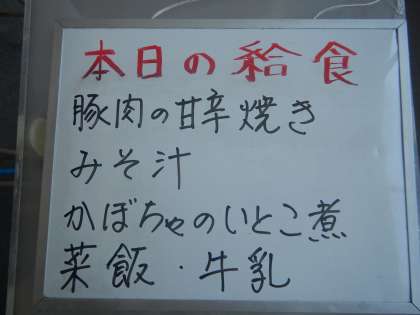 本日の給食
豚肉の甘辛焼き
みそ汁
かぼちゃのいとこ煮
菜飯・牛乳